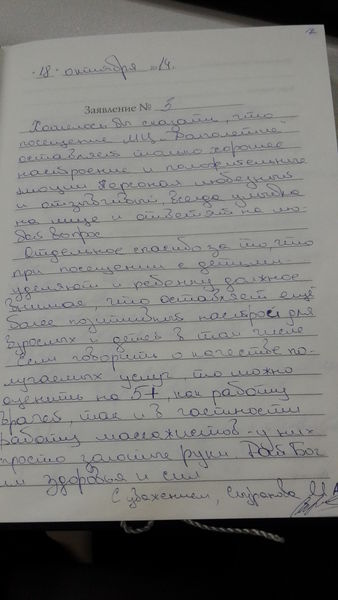 2
"18" октября 2014.
Заявление № 5
Хотелось бы сказать, что
посещение МЦ "Долголетие"
оставляет только хорошее
настроение и положительные
эмоции. Персонал любезный
и отзывчивый, всегда улыбка
на лице и ответят на лю-
бой вопрос.
Отдельное спасибо за то, что
при посещении с детьми
уделяют и ребенку должное
внимание, что оставляет ещё
более позитивный настрой для
взрослых и детей в том числе
Если говорить о качестве по-
лучаемых услуг, то можно
оценить на 5+, как работу
врачей, так и в частности
работу массажистов - у них
просто золотые руки. Дай Бог
им здоровья и сил
С уважением,